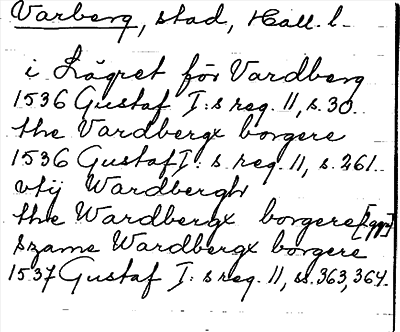 Varberg, stad, Hall. l.
i Lägret för Vardberg
1536 Gustaf I:s reg. 11, s. 30.
the Vardbergx borgere
1536 Gustaf I:s reg. 11, s. 261.
vtij Wardbergh
the Wardbergx borgere [2 ggr]
szame Wardbergx borgere
1537 Gustaf I:s reg. 11, ss. 363, 364.